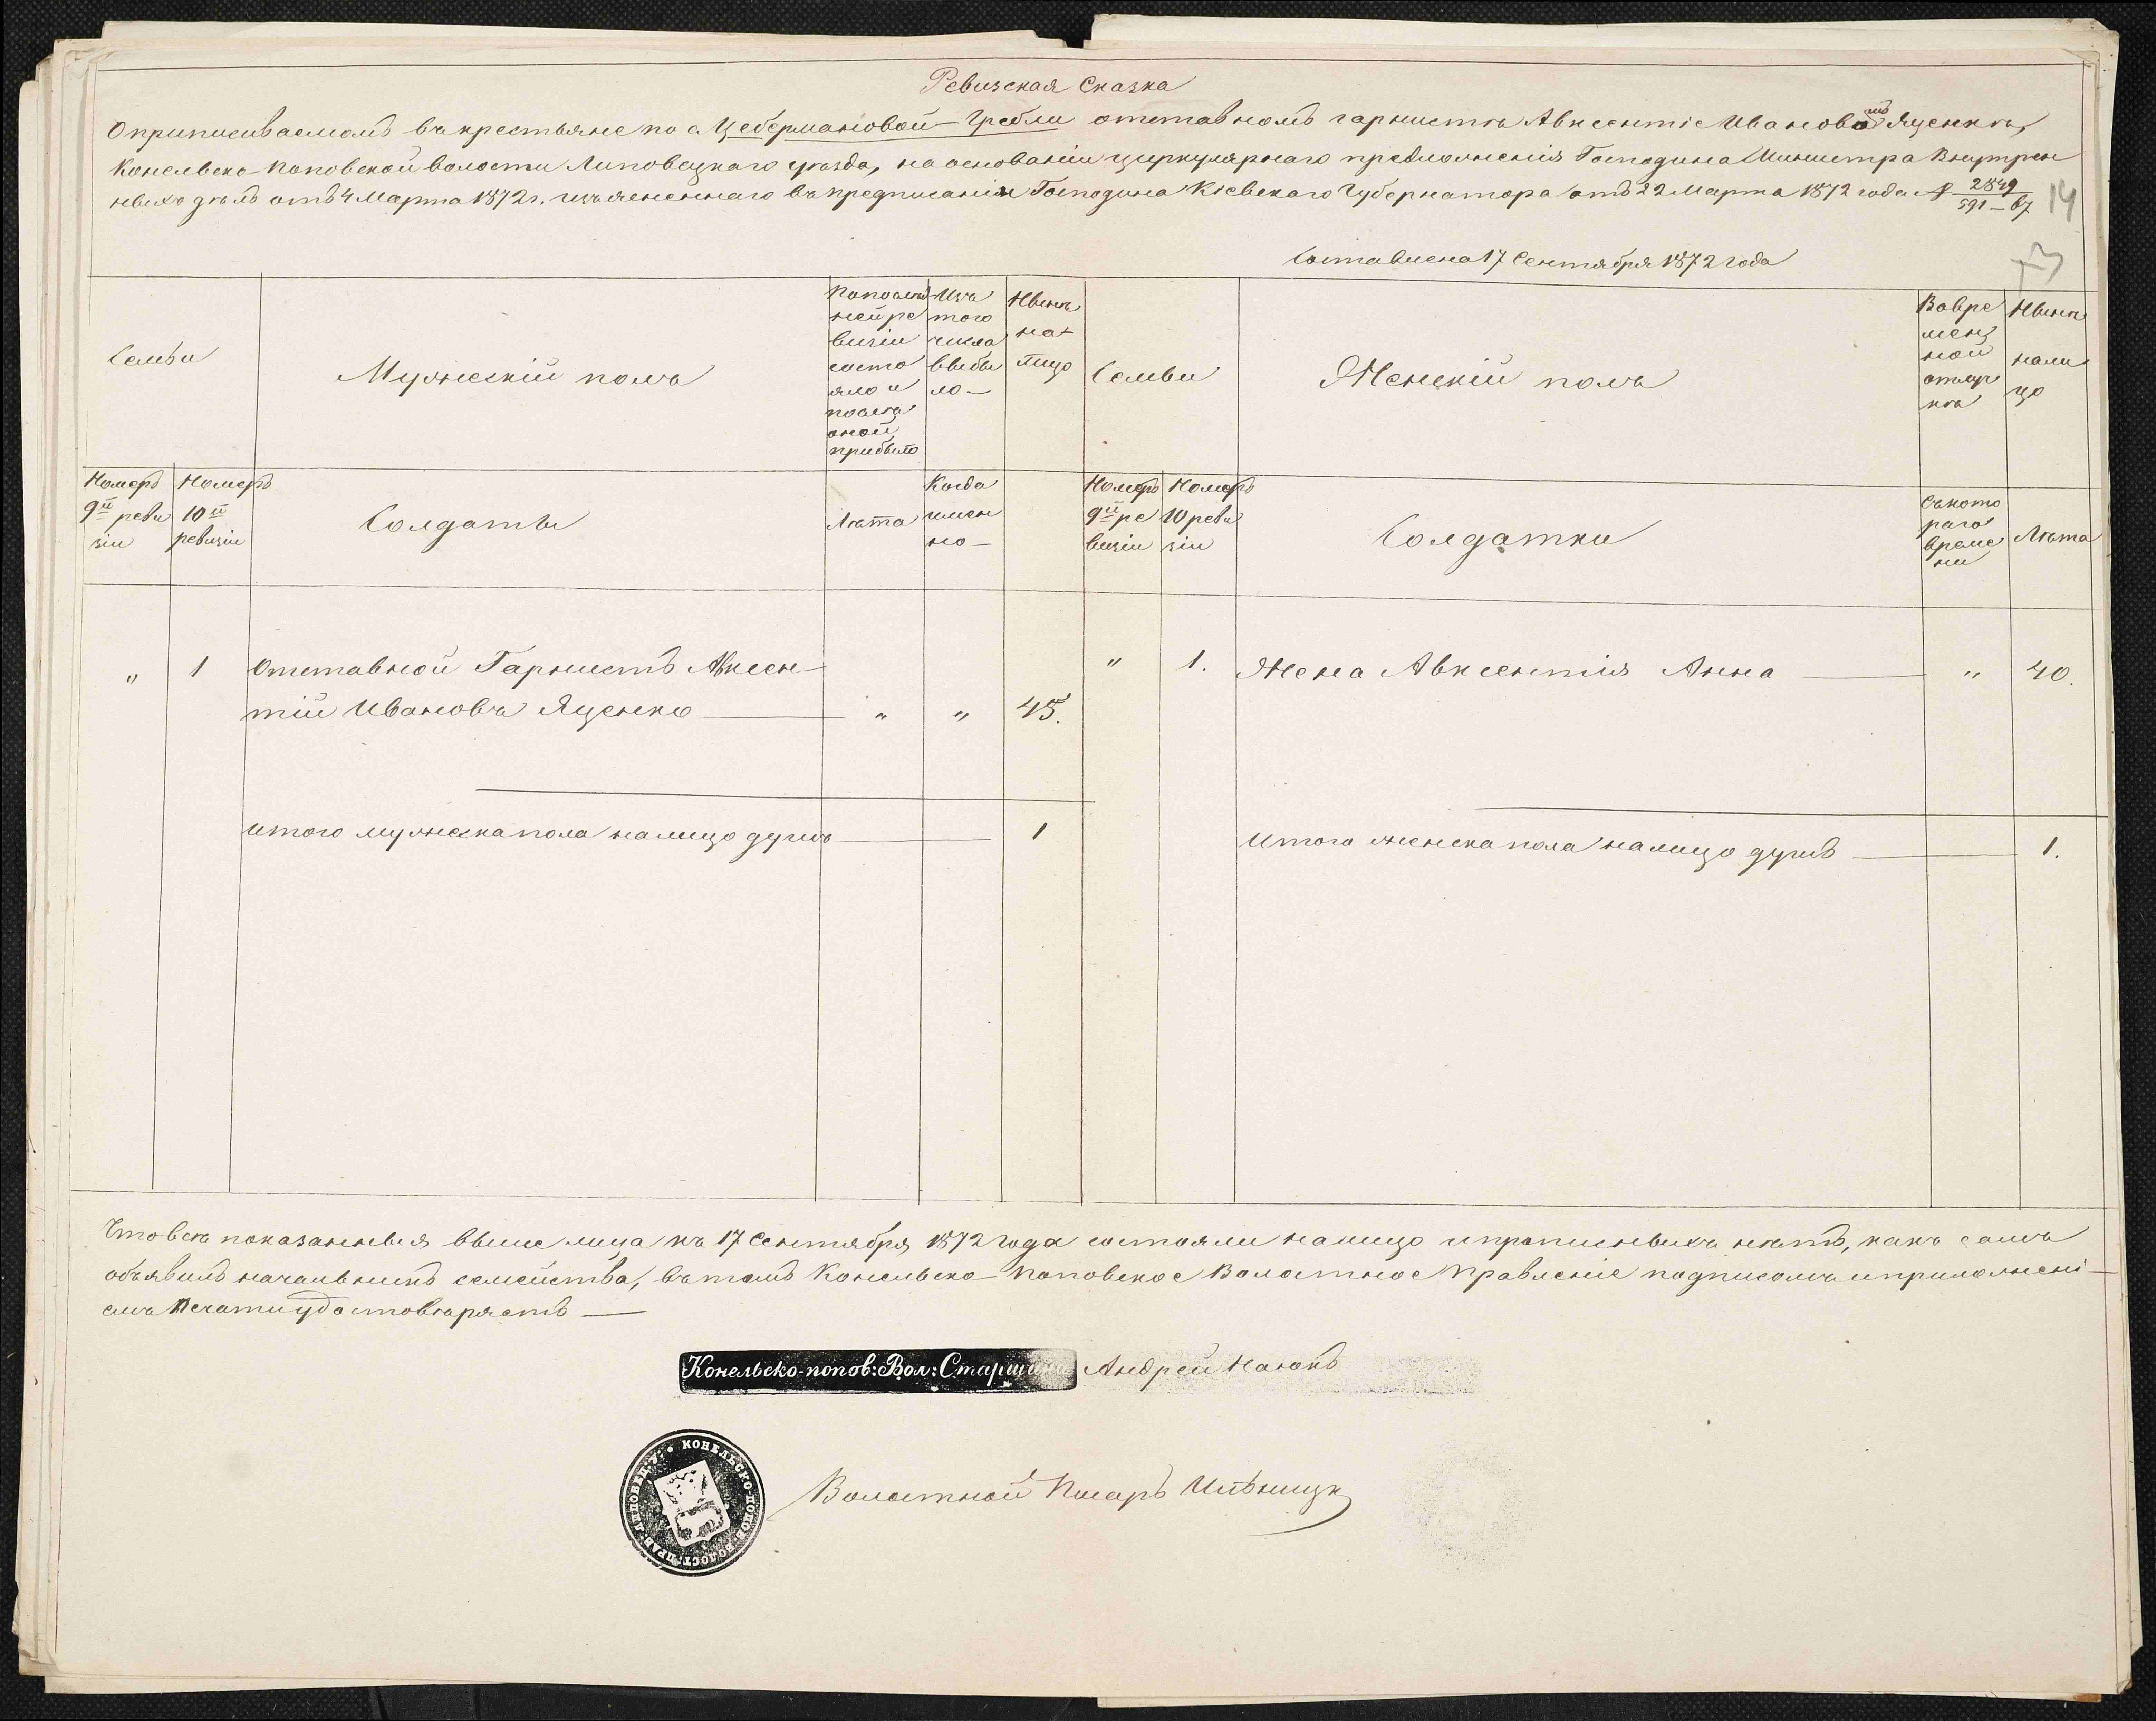 Ревизская Сказка
О приписываемомъ въ крестьяне по с. Цебермановой-Гребли отставномъ гарнистѣ Авксентіе Ивановѣ Яценкѣ,
Конельско-Поповской волости Липовецкаго уѣзда, на основаніи циркулярнаго предложенія Господина Министра Внутрен
ныхъ дѣлъ отъ 4 Марта 1872 г. изъясненнаго въ предписаніи Господина Кіевскаго Губернатора отъ 22 Марта 1872 года № 2849/591-67
14
13
Составлена 17 Сентября 1872 года
Семьи
Мужескій полъ
По послѣд
ней ре
визіи
состо
яло и
послѣ
оной
прибыло
Изъ
того
числа
выбы
ло
Нынѣ
на
лицо
Семьи
Женскій полъ
Во вре
мен
ной
отлуч
кѣ
Нынѣ
нали
цо
Номеръ
9й реви
зіи
Номеръ
10й
ревизіи
Солдаты
Лѣта
Когда
имен
но
Номеръ
9й ре
визіи
Номеръ
10 реви
зіи
Солдатки
Съ кото
раго
време
ни
Лѣта
" 1 Отставной Гарнистъ Авксен-
тій Ивановъ Яценко " " 45.
" 1. Жена Авксентія Анна " 40.
Итого мужеска пола налицо душъ 1
Итого женска пола налицо душъ 1.
Что всѣ показанныя выше лица къ 17 Сентября 1872 года состояли налицо и прописныхъ нѣтъ, какъ самъ
объявилъ начальникъ семейства, въ томъ Конельско-Поповское Волостное Правленіе подписомъ и приложені-
емъ печати удостовѣряетъ
Конельско-попов: Вол: Старшина Андрей
КОНЕЛЬСКО-ПОПОВ. ВОЛОСТ: ПРАВ: ЛИПОВЕЦ: У:
Волостной Писарь